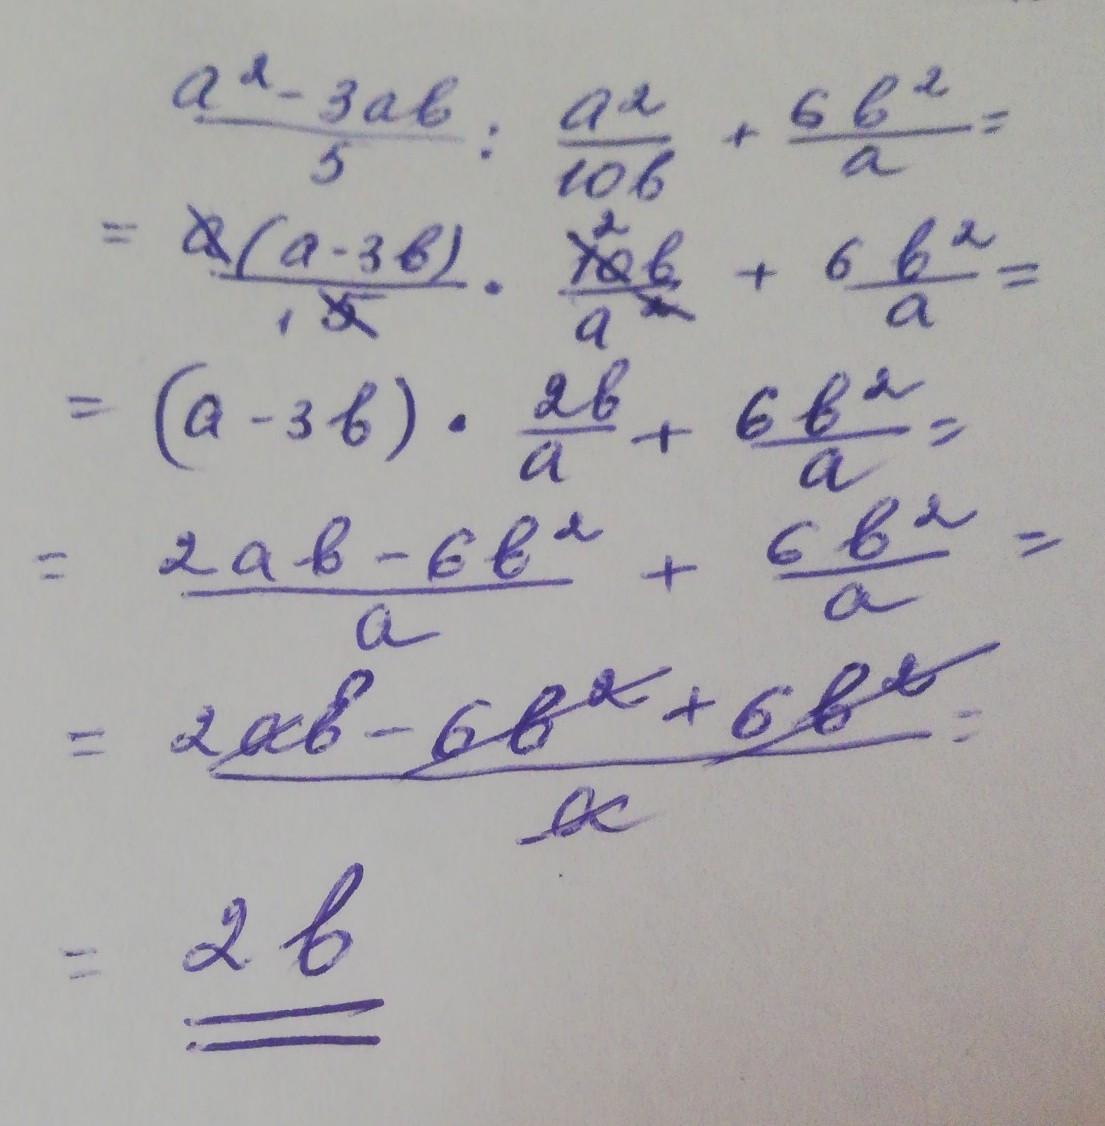 a² - 3ab / 5 : a² / 10b + 6b² / a =
= a(a - 3b) / 1 5 · 2 10b / a² + 6b² / a =
= (a - 3b) · 2b / a + 6b² / a =
= 2ab - 6b² / a + 6b² / a =
= 2ab - 6b² + 6b² / a =
= 2b